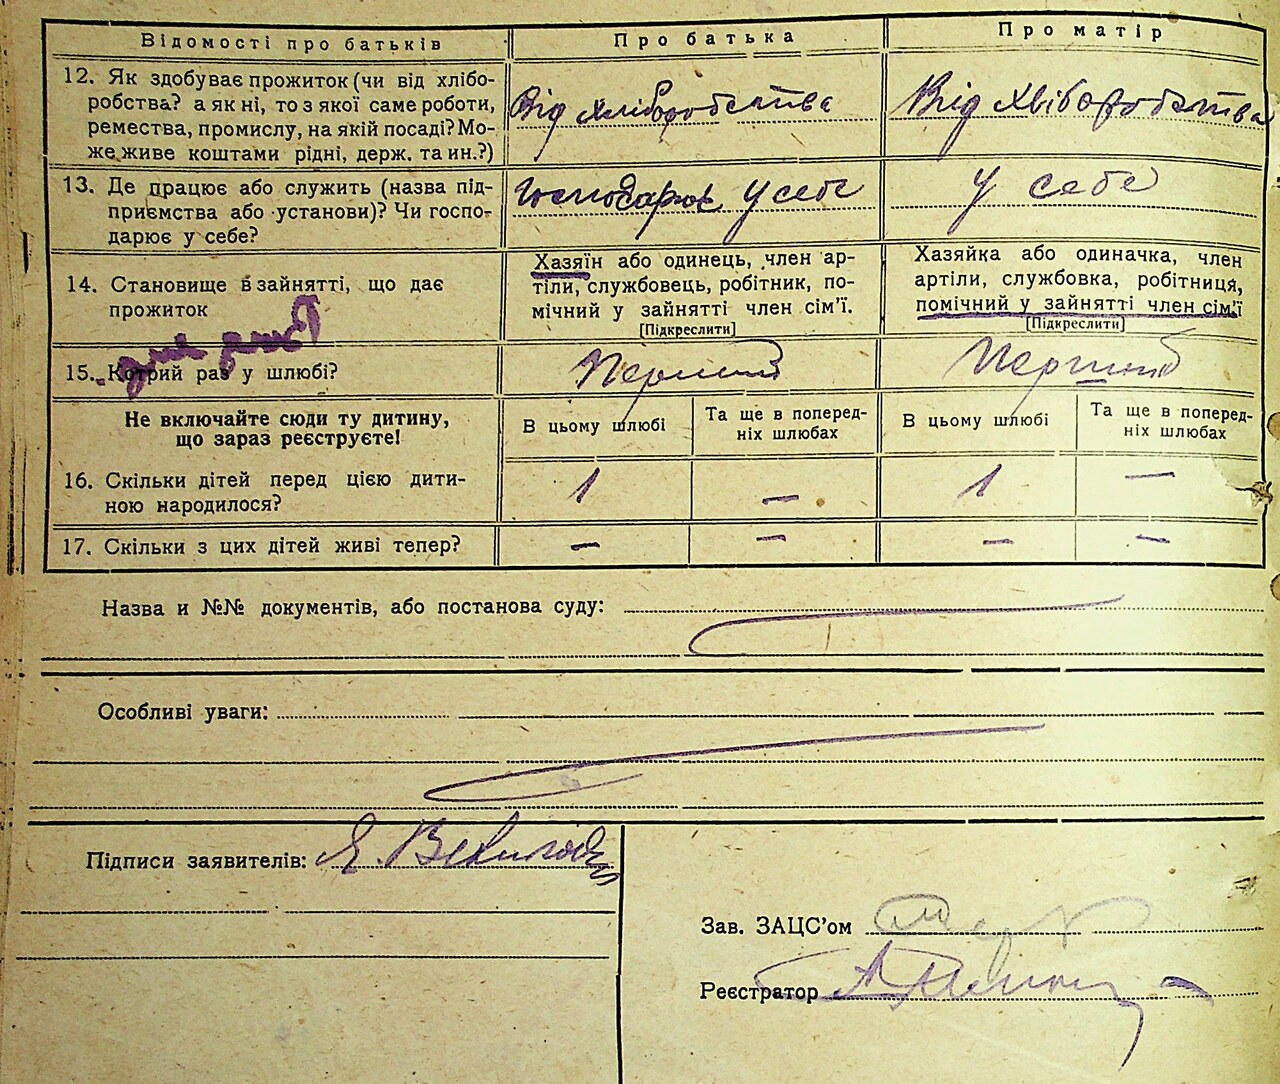 Відомості про батьків
Про батька
Про матір
12. Як здобуває прожиток (чи від хлібо-
робства? а як ні, то з якої саме роботи,
ремества, промислу, на якій посаді? Мо-
же живе коштами рідні, держ. та ин.?)
Від хліборобства
Від хліборобства
13. Де працює або служить (назва під-
приємства або установи)? Чи госпо-
дарює у себе?
Господарює у себе
у себе
14. Становище в зайнятті, що дає
прожиток
Хазяїн або одинець, член ар-
тіли, службовець, робітник, по-
мічний у зайнятті член сім'ї.
[Підкреслити]
Хазяйка або одиначка, член
артіли, службовка, робітниця,
помічний у зайнятті член сім'ї
[Підкреслити]
15. Котрий раз у шлюбі?
Перший
Перший
Не включайте сюди ту дитину,
що зараз реєструєте!
В цьому шлюбі
Та ще в поперед-
ніх шлюбах
В цьому шлюбі
Та ще в поперед-
ніх шлюбах
16. Скільки дітей перед цією дити-
ною народилося?
1
—
1
—
17. Скільки з цих дітей живі тепер?
—
—
—
—
Назва и №№ документів, або постанова суду:
Особливі уваги:
Підписи заявителів:
Зав. ЗАЦС'ом
Реєстратор